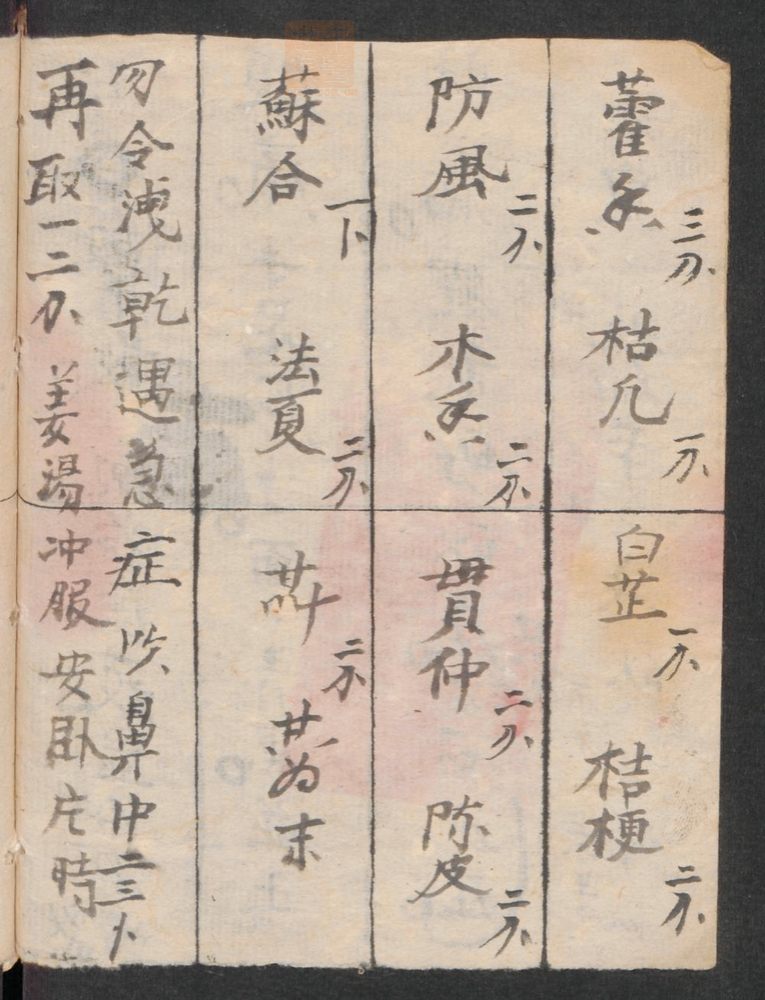 藿香 三分 枯凡 一分 白芷 一分 桔梗 二分
防風 二分 木香 二分 貫仲 二分 陈皮 二分
蘇合 一卜 法夏 二分 二分 共為末
勿令洩乾遇急症吹鼻中二三卜
再取一二分姜湯冲服安卧片時